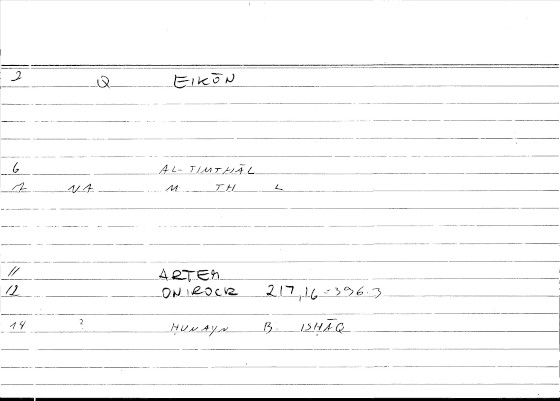 2 Q EIKŌN
6 AL-TIMTHĀL
7 NA M TH L
11 ARTEM
12 ONIROCR 217,16-396.3
14 ? ḤUNAYN B ISḤĀQ